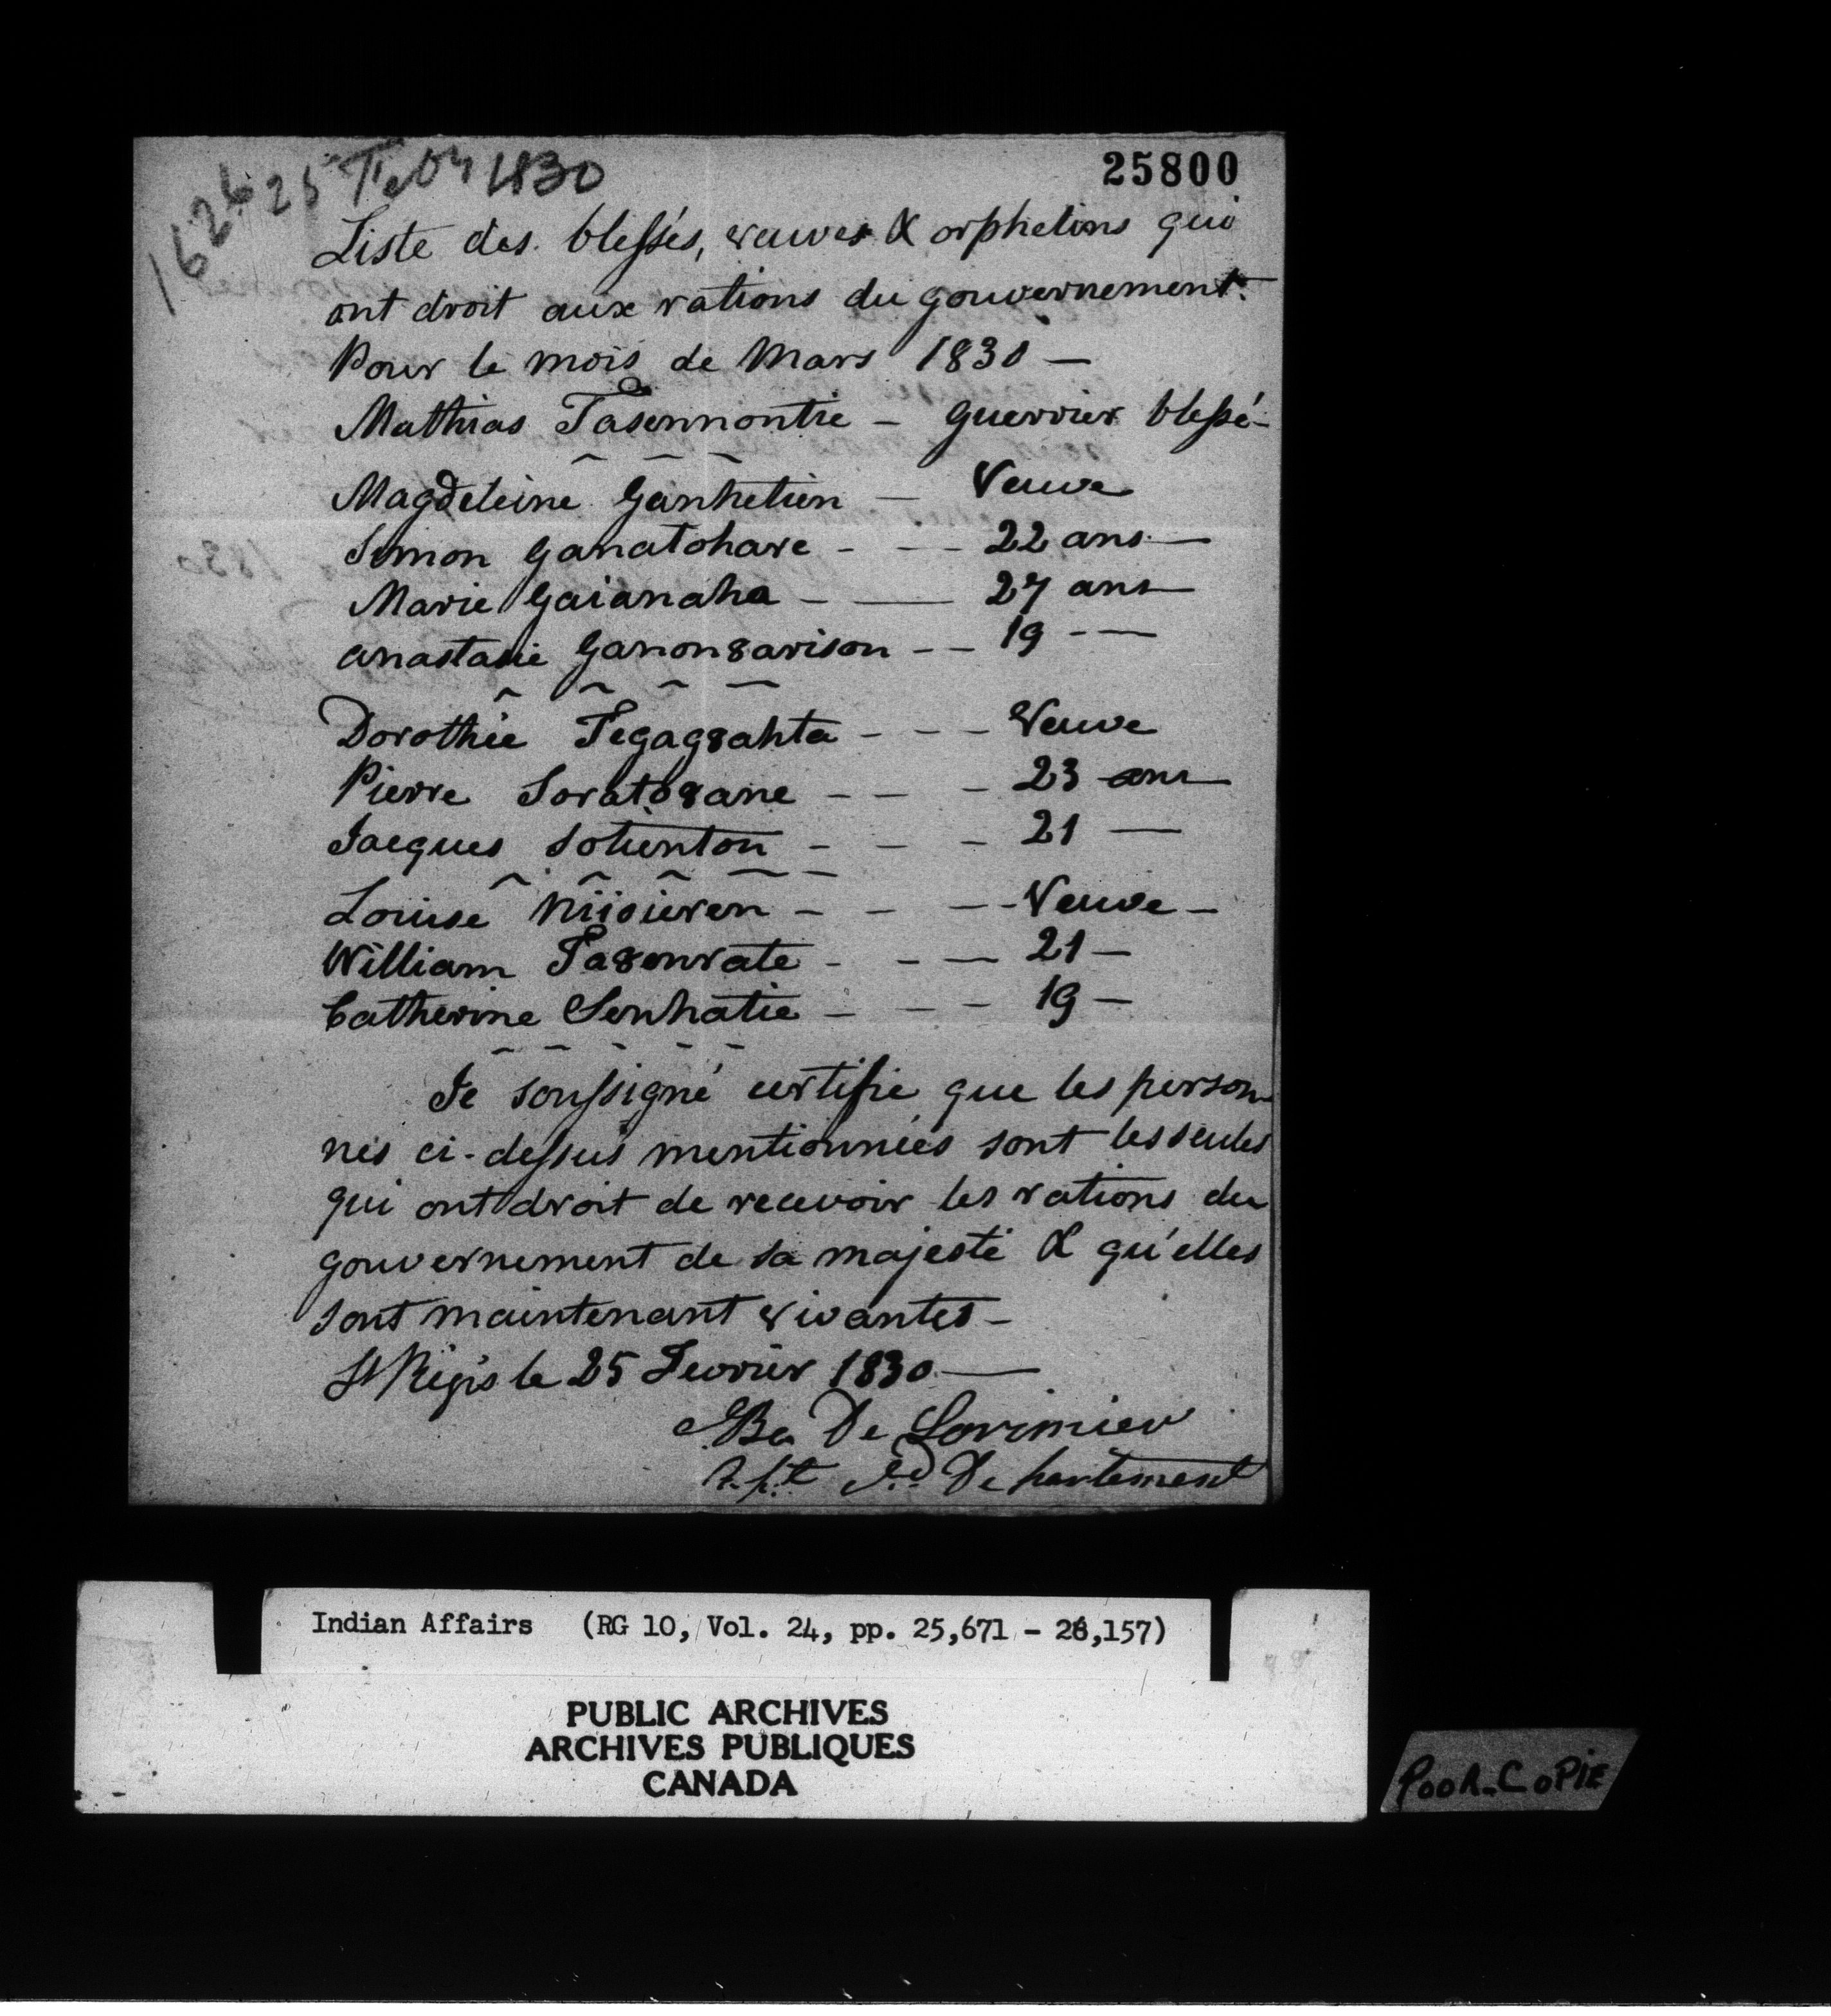 25800
1626 25 Feby 1830
Liste des blessés, veuves & orphelins qui
ont droit aux rations du gouvernement.
Pour le mois de Mars 1830 —
Mathias Tasennontie - guerrier blessé -
Magdeleine Ganhetien — Veuve
Simon Ganatohare - - - 22 ans —
Marie Gaianaha - — 27 ans
anastasie Ganon8arison - - 19 - —
Dorothée Tegag8ahta - - - Veuve
Pierre Sorato8ane - - - 23 ans
Jacques Sotienton - - - 21 —
Louise Niioieren - - - - Veuve -
William Ta8enrate - - — 21 —
Catherine Senhatie - - - 19 —
Je soussigné certifie que les person-
nes ci-dessus mentionnées sont les seules
qui ont droit de recevoir les rations du
gouvernement de sa majesté & qu'elles
sont maintenant vivantes -
St Régis le 25 Fevrier 1830 —
De Lorimier
Departement
Indian Affairs (RG 10, Vol. 24, pp. 25,671 - 26,157)
PUBLIC ARCHIVES
ARCHIVES PUBLIQUES
CANADA
POOR-COPIE